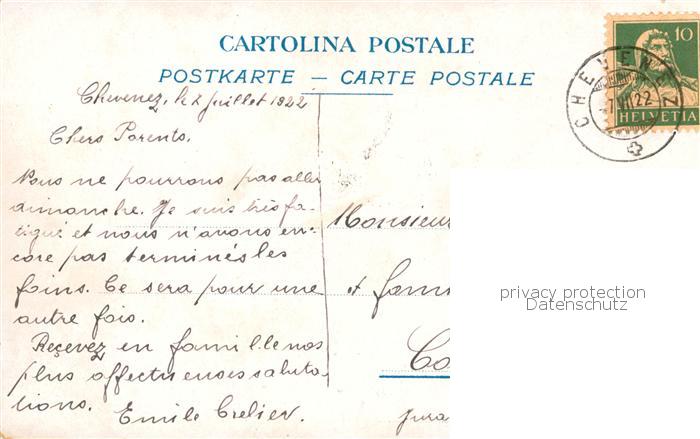 CARTOLINA POSTALE
POSTKARTE — CARTE POSTALE
10
HELVETIA
CHEVENEZ
7.VII.22
Chevenez, le 7 juillet 1922
Chers Parents.
Nous ne pourrons pas aller
dimanche. Je suis très fa-
tigué et nous n'avons en-
core pas terminés les
foins. Ce sera pour une
autre fois.
Reçevez en famille nos
plus affectueuses saluta-
tions. Emile Crelier.
Monsieur
et fam
Co
Jura
privacy protection
Datenschutz